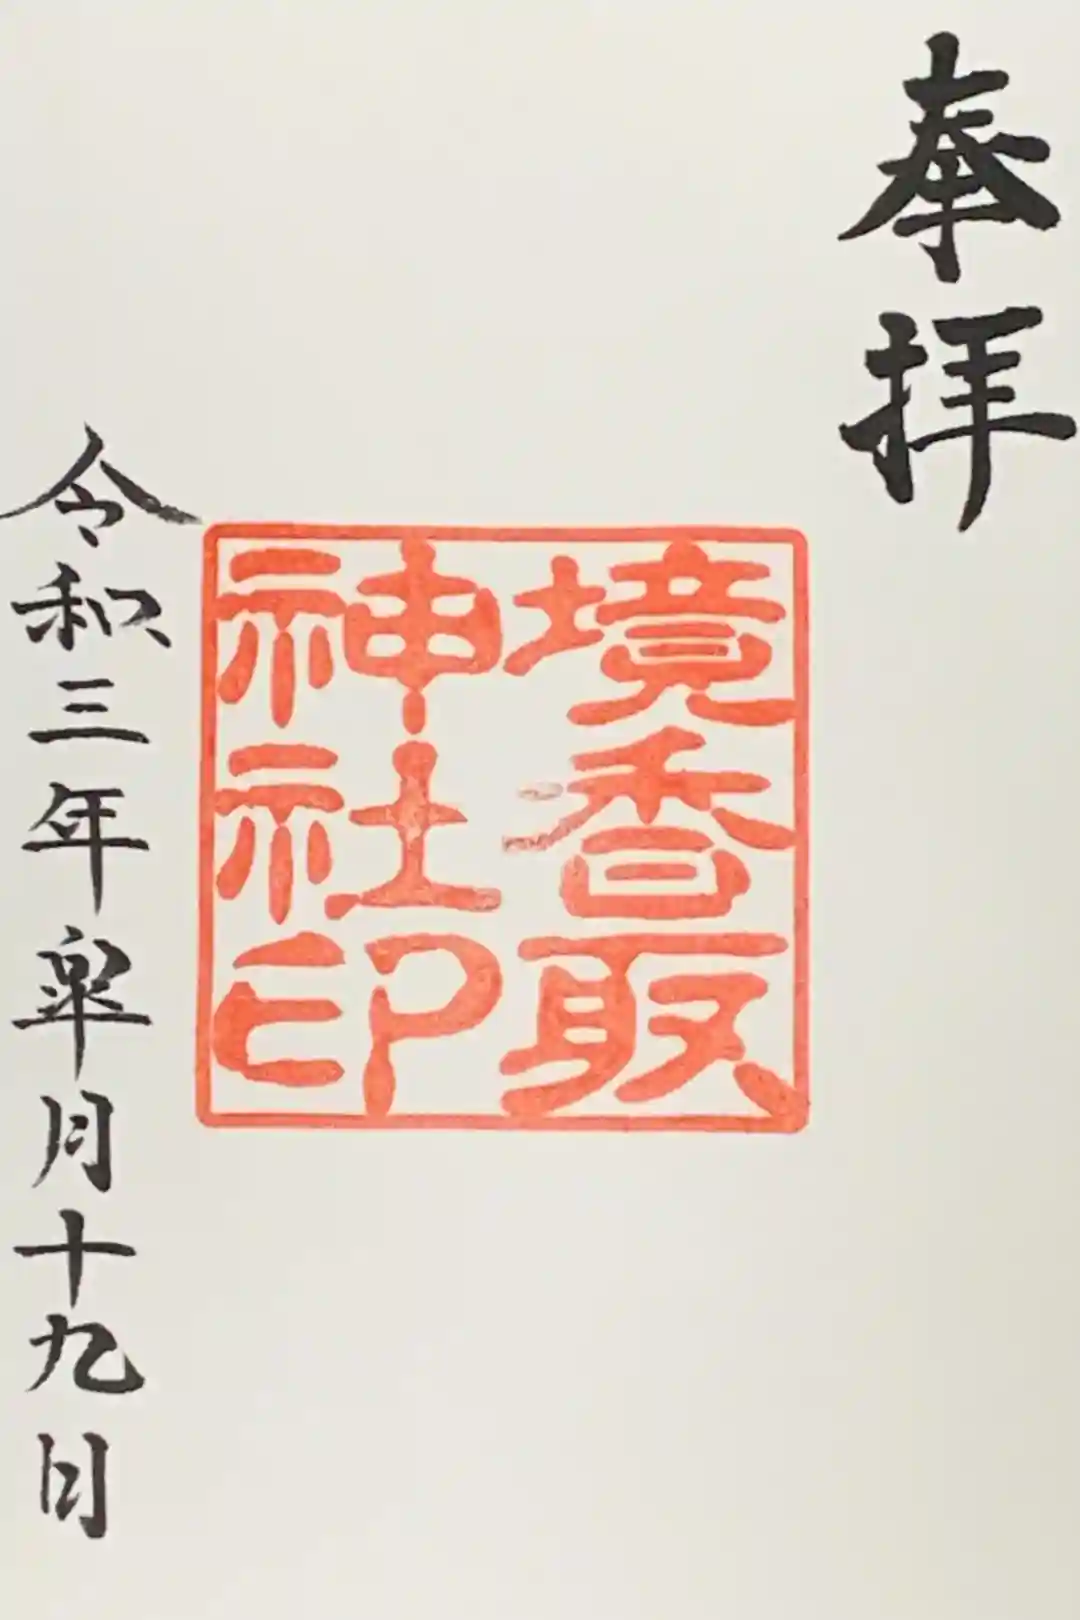 奉拝
境香取
神社印
令和三年皐月十九日